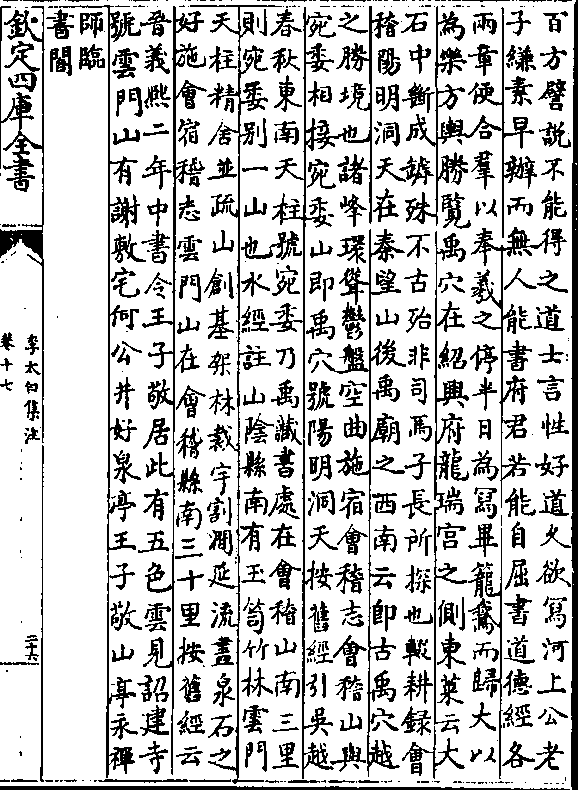 百方譬説不能得之道士言性好道乆欲寫河上公老
子縑素早辦而無人能書府君若能自屈書道德經各
兩章便合羣以奉羲之停半日為寫畢籠鵞而歸大以
為樂方輿勝覽禹穴在紹興府龍瑞宮之側東萊云大
石中斷成罅殊不古殆非司馬子長所探也輟耕録會
稽陽明洞天在秦望山後禹廟之西南云即古禹穴越
之勝境也諸峰環聳鬱盤空曲施宿會稽志會稽山與
宛委相接宛委山即禹穴號陽明洞天按舊經引吳越
春秋東南天柱號宛委乃禹藏書處在會稽山南三里
則宛委別一山也水經註山陰縣南有玉笥竹林雲門
天柱精舍並疏山創基架林裁宇割澗延流盡泉石之
好施會宿稽志雲門山在會稽縣南三十里按舊經云
晉義熙二年中書令王子敬居此有五色雲見詔建寺
號雲門山有謝敷宅何公井好泉亭王子敬山亭永禪
師臨書閣
欽定四庫全書
李太白集注
卷十七
二十六